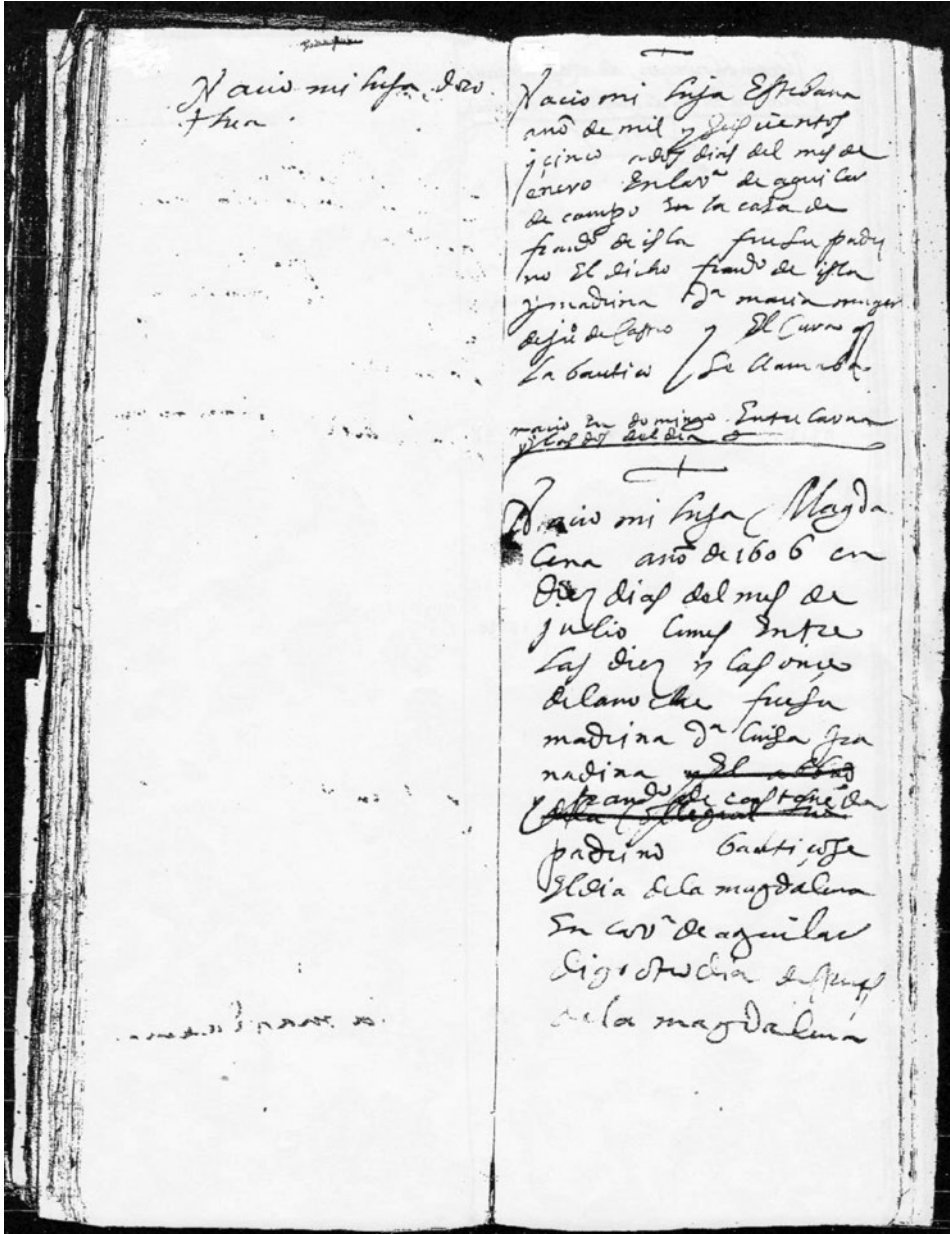 Nacio mi hija doro
thea
Nacio mi hija Estebana
año de mil y seiscientos
y cinco a dos dias del mes de
enero En la vª de aguilar
de campo En la casa de
franᵈᵒ de isla fue su padri
no El dicho franᵈᵒ de isla
y madrina dª maria muger
de juº de Castro y El Cura q
La bautiço Se llamaba
nacio En domingo Entre la una
y las dos del dia
Nacio mi hija Magda
lena año de 1606 en
Diez dias del mes de
julio lunes Entre
las diez y las once
de la noche fue su
madrina dª luisa gra
nadina y El
y franᵈᵒ de
padrino bautiçose
El dia de la magdalena
En la vª de aguilar
digo otro dia despues
de la magdalena